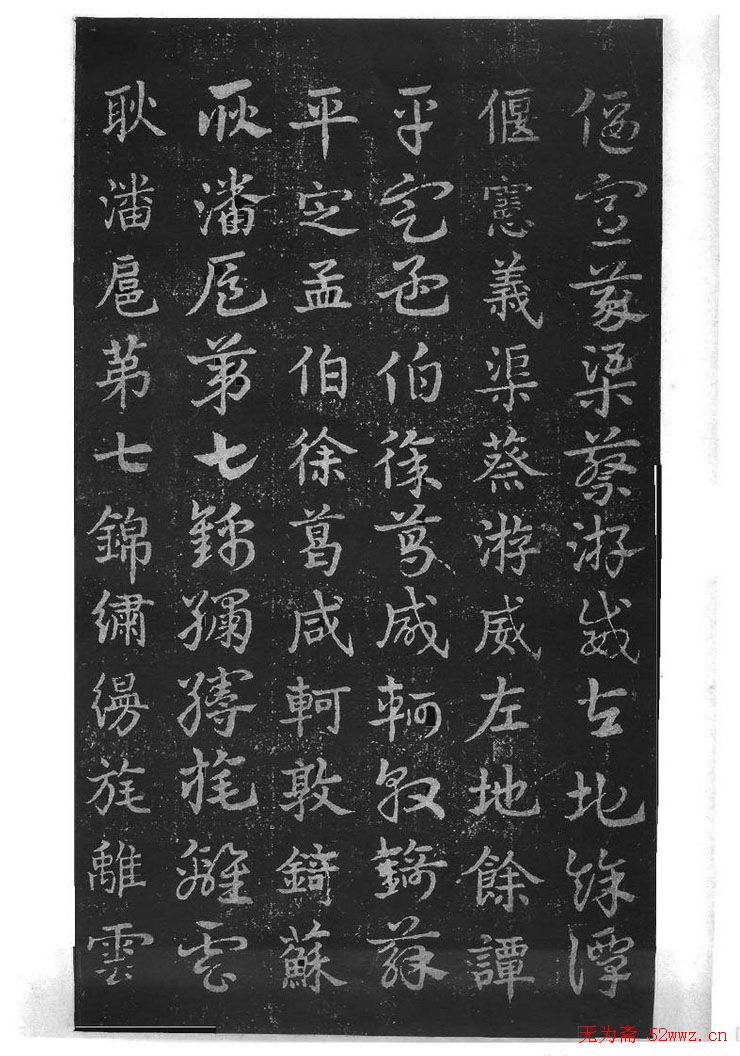 偃憲義渠蔡游威左地餘譚
偃憲義渠蔡游威左地餘譚
平定孟伯徐葛咸軻敦錡蘇
平定孟伯徐葛咸軻敦錡蘇
耿潘扈第七錦繡縵旄離雲
耿潘扈第七錦繡縵旄離雲
无为斋 52wwz.cn